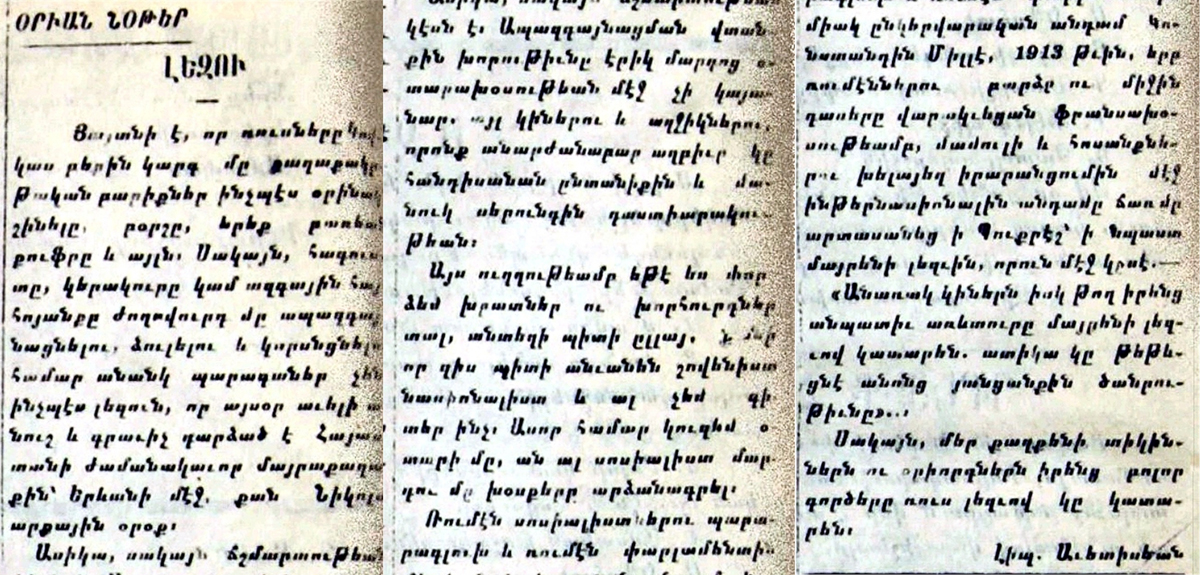 ՕՐԻԱՆ ՆՕԹԵՐ
ԼԵԶՈՒ
Յայտնի է, որ ռուսները Կով
կաս բերին կարգ մը քաղաքակր
թական բարիքներ ինչպէս օրինակ
շինելը, բօրշը, երեք
քուֆրը և այլն. Սակայն, հագուս
տը, կերակուրը կամ ազգային հայ
հոյանքը ժողովուրդ մը ապազգայ
նացնելու, ձուլելու և կորսնցնելու
համար անանկ պարագաներ չեն
ինչպէս լեզուն, որ այսօր աւելի ա
նուշ և գրաւիչ դարձած է Հայաս
տանի ժամանակաւոր մայրաքաղա
քին՝ Երևանի մէջ, քան Նիկոլա
արքային օրօք։
Ասիկա, սակայն ճշմարտութեան
կէսն է. Ապազգայնացման վտան-
քին խորութիւնը էրիկ մարդոց օ-
տարախօսութեան մէջ չի կայա-
նար. այլ կիներու և աղջիկներու,
որոնք անարժանաբար աղբիւր կը
հանդիսանան ընտանիքին և մա-
նուկ սերունդին դաստիարակու-
թեան։
Այս ուղղութեամբ եթէ ես փոր
ձեմ խրատներ ու խորհուրդներ
տալ, անտեղի պիտի ըլլայ.
որ զիս պիտի անւանեն շովենիստ
նասիոնալիստ և ալ չեմ գի
տեր ինչ. Ասոր համար կուզեմ օ
տարի մը, ան ալ սոսիալիստ մար
դու մը խօսքերը արձանագրել.
Ռումէն սոսիալիստներու պարա-
րագլուխ և ռումէն փարլամենտի-
միակ ընկերվարական անդամ Կոն-
նստանդին Միլլէ, 1913 թւին, երբ
ռումէններու բարձր ու միջին
դասերը վարակւեցան ֆրանսախօ-
սութեամբ, մամուլի և հոսանքնե-
րու խելայեղ իրարանցումին մէջ
ինթերնասիոնալին անդամը ճառ մը
արտասանեց ի Պուքրէշ՝ ի նպաստ
մայրենի լեզւին, որուն մէջ կըսէ.—
«Անառակ կիներն իսկ թող իրենց
անպատիւ առևտուրը մայրենի լեզ-
ւով կատարեն. ատիկա կը թեթև-
ցնէ անոնց յանցանքին ծանրու-
թիւնը»...
Սակայն, մեր քաղքենի տիկին-
ներն ու օրիորդներն իրենց բոլոր
գործերը ռուս լեզւով կը կատա-
րեն.
Լիպ. Աւետիսեան